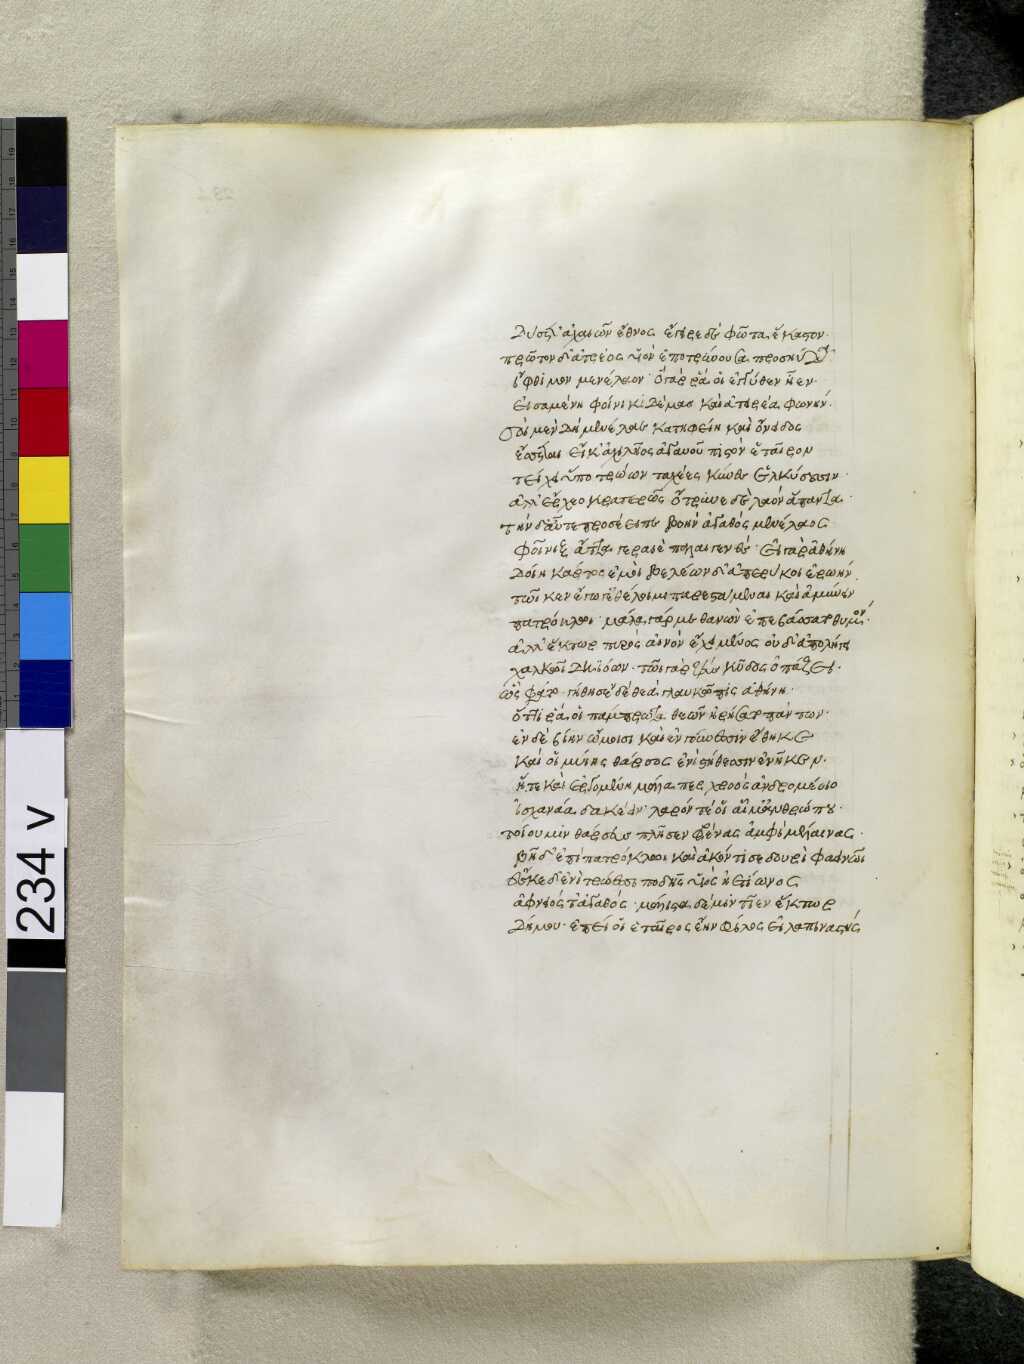 δύσετ' ἀχαιῶν ἔθνος· ἔγειρε δὲ φῶτα ἕκαστον·
πρῶτον δ' ἀτρέος υἱὸν ἐποτρύνουσα προσηύδα
ἴφθιμον μενέλαον· ὃ γάρ ῥά οἱ ἐγγύθεν ἦεν·
εἰσαμένη φοίνικι δέμας καὶ ἀτειρέα φωνήν·
σοὶ μὲν δὴ μενέλαε κατηφείη καὶ ὄνειδος
ἔσσεται εἴ κ' ἀχιλῆος ἀγαυοῦ πιστὸν ἑταῖρον
τείχει ὕπο τρώων ταχέες κύνες ἑλκύσουσιν·
ἀλλ' ἔχεο κρατερῶς ὄτρυνε δὲ λαὸν ἅπαντα·
τὴν δ' αὖτε προσέειπε βοὴν ἀγαθὸς μενέλαος
φοῖνιξ ἄττα γεραιὲ παλαιγενές· εἰ γὰρ ἀθήνη
δοίη κάρτος ἐμοὶ βελέων δ' ἀπερύκοι ἐρωήν·
τῶι κεν ἔγωγ' ἐθέλοιμι παρεστάμεναι καὶ ἀμύνειν
πατρόκλωι· μάλα γάρ με θανὼν ἐπεμάσσατο θυμόν·
ἀλλ' ἕκτωρ πυρὸς αἰνὸν ἔχει μένος οὐδ' ἀπολήγει
χαλκῶι δηϊόων· τῶι γὰρ ζεὺς κῦδος ὀπάζει·
ὣς φάτο· γήθησεν δὲ θεὰ γλαυκῶπις ἀθήνη·
ὅττί ῥά οἱ πάμπρωτα θεῶν ἠρήσατο πάντων·
ἐν δὲ βίην ὤμοισι καὶ ἐν γούνεσσιν ἔθηκε
καί οἱ μυίης θάρσος ἐνὶ στήθεσσιν ἐνῆκεν·
ἥ τε καὶ ἐργομένη μάλα περ χροὸς ἀνδρομέοιο
ἰσχανάα δακέειν· λαρόν τέ οἱ αἷμ' ἀνθρώπου·
τοίου μιν θάρσευς πλῆσεν φρένας ἀμφὶ μελαίνας·
βῆ δ' ἐπὶ πατρόκλωι καὶ ἀκόντισε δουρὶ φαεινῶι
ἔσκε δ' ἐνὶ τρώεσσι ποδῆς υἱὸς ἠετίωνος
ἀφνειός τ' ἀγαθός· μάλιστα δέ μιν τίεν ἕκτωρ
δήμου· ἐπεί οἱ ἑταῖρος ἔην φίλος εἰλαπιναστής
234 v